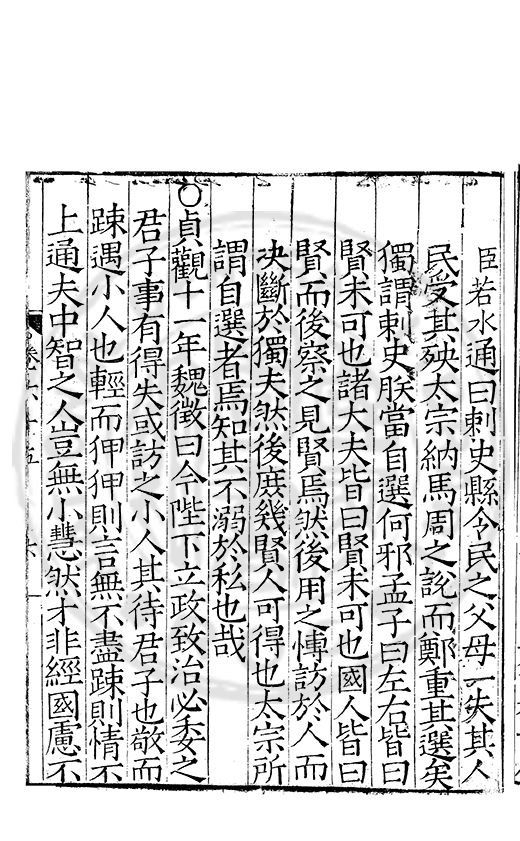 臣若水通曰刺史縣令民之父母一失其人
民受其殃太宗納馬周之說而鄭重其選矣
獨謂刺史朕當自選何邪孟子曰左右皆曰
賢未可也諸大夫皆曰賢未可也國人皆曰
賢而後察之見賢焉然後用之愽訪於人而
决斷於獨夫然後庶幾賢人可得也太宗所
謂自選者焉知其不溺於私也哉
○貞觀十一年魏徵曰今陛下立政致治必委之
君子事有得失或訪之小人其待君子也敬而
踈遇小人也輕而狎狎則言無不盡踈則情不
上通夫中智之人豈無小慧然才非經國慮不
卷六十五